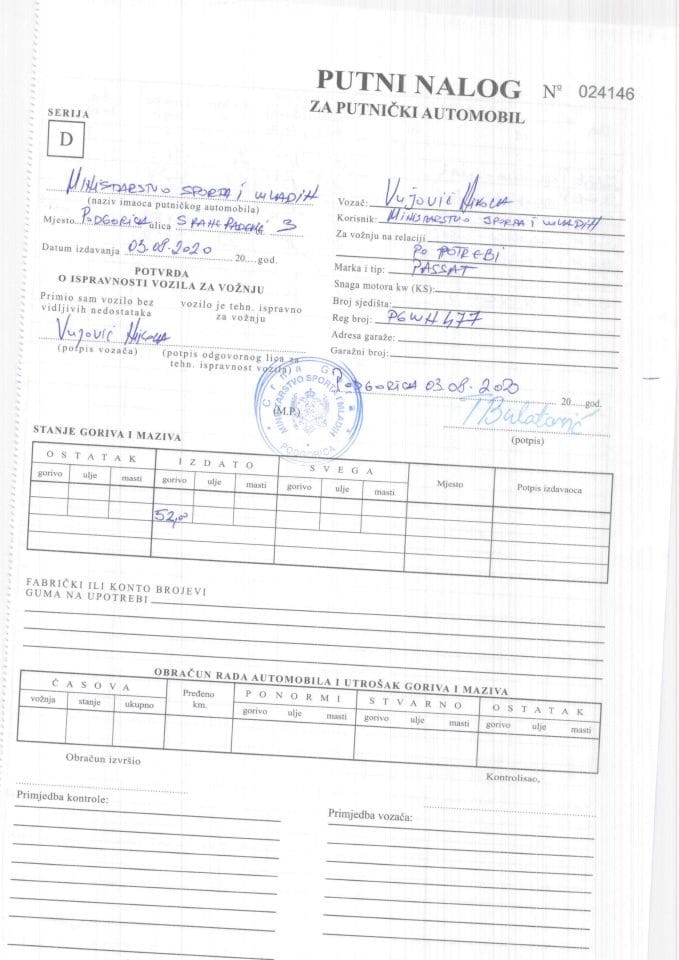 PUTNI NALOG Nº 024146
ZA PUTNIČKI AUTOMOBIL
SERIJA
D
MINISTARSTVO SPORTA I MLADIH
(naziv imaoca putničkog automobila)
Mjesto PODGORICA ulica 3
Datum izdavanja 03.08.2020 20....god.
POTVRDA
O ISPRAVNOSTI VOZILA ZA VOŽNJU
Primio sam vozilo bez vidljivih nedostataka
vozilo je tehn. ispravno za vožnju
Vujović Nikola
(potpis vozača)
(potpis odgovornog lica za tehn. ispravnost vozila)
Vozač: Vujović Nikola
Korisnik: MINISTARSTVO SPORTA I MLADIH
Za vožnju na relaciji
PO POTREBI
Marka i tip: PASSAT
Snaga motora kw (KS):
Broj sjedišta:
Reg broj: PGWH477
Adresa garaže:
Garažni broj:
PODGORICA 03.08.2020 20....god.
(M.P.)
Crna Gora
MINISTARSTVO SPORTA I MLADIH
PODGORICA
(potpis)
STANJE GORIVA I MAZIVA
OSTATAK IZDATO SVEGA Mjesto Potpis izdavaoca
gorivo ulje masti gorivo ulje masti gorivo ulje masti
FABRIČKI ILI KONTO BROJEVI
GUMA NA UPOTREBI
OBRAČUN RADA AUTOMOBILA I UTROŠAK GORIVA I MAZIVA
ČASOVA Pređeno km. PO NORMI STVARNO OSTATAK
vožnja stanje ukupno gorivo ulje masti gorivo ulje masti gorivo ulje masti
Obračun izvršio
Kontrolisao,
Primjedba kontrole:
Primjedba vozača: